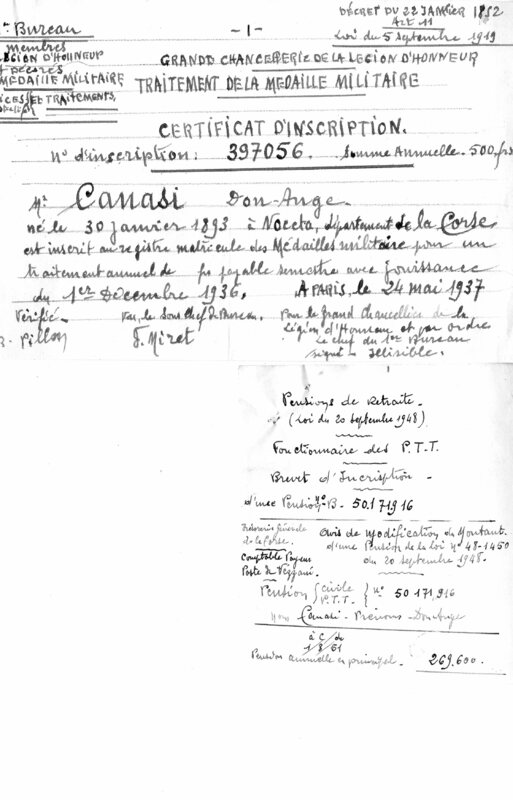 Bureau
- 1 -
DÉCRET DU 22 JANVIER 1852
Art 11
Loi du 5 Septembre 1919
membres
LEGION D'HONNEUR
décorés
MÉDAILLE MILITAIRE
ICES ET TRAITEMENTS,
GRANDE CHANCELLERIE DE LA LEGION D'HONNEUR
TRAITEMENT DE LA MEDAILLE MILITAIRE
CERTIFICAT D'INSCRIPTION.
N° d'inscription: 397056. Somme Annuelle. 500, frs
Mr. Canasi Don-Ange.
né le 30 janvier 1893 à Noceta, département de la Corse
est inscrit au registre matricule des Médailles militaire pour un
traitement annuel de frs payable semestre avec Jouissance
du 1er Decembre 1936. A PARIS, le 24 mai 1937
Vérifié. Vu, le Sous Chef de Bureau. Pour le Grand Chancellier de la
Pillon F. Miret Légion d'Honneur et par ordre
Le chef du 1er Bureau
signé = Illisible.
Pensions de Retraite -
(Loi du 20 septembre 1948)
Fonctionnaire des P.T.T.
Brevet d'Incription -
d'une Pension N° B - 50.171916
Trésorerie Générale
de la Corse.
Comptable Payeur
Poste de Vezzani.
Avis de modification du Montant
d'une Pension de la loi N° 48-1450
du 20 septembre 1948.
Pension { civile P.T.T. } N° 50 171,916
Nom Canasi - Prénoms - Don Ange
à C de
1/8/61
Pension annuelle en principal. 269.600.